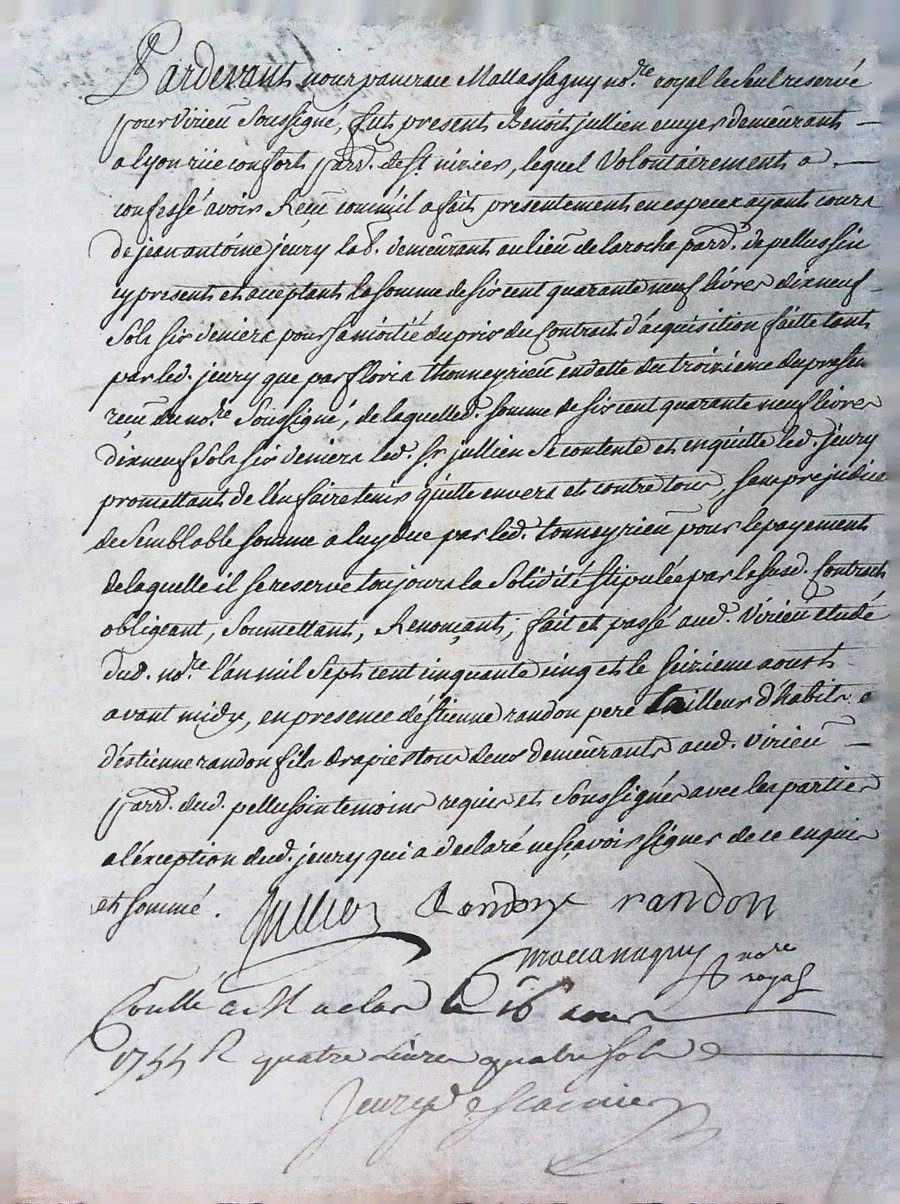 Pardevant nous pancrace Mattassagny no.re royal le seul reservé
pour Virieu Soussigné, fut present Benoit jullien ecuyer demeurant
a lyon rüe confort parr. de St. nizier, lequel Volontairement a
confessé avoir Reçu comm'il a fait presentement en especes ayant cours
de jean antoine jeury lab. demeurant au lieu de laroche parr. de pellussin
cy present et acceptant la somme de six cent quarante neuf livres dixneuf
Sols six deniers pour sa moitié du prix du Contract d'acquisition faitte tant
par led. jeury que par floris thonneyrieu en datte du troizieme du presen
reçu du no.re Soussigné, de laquelle d. somme de six cent quarante neuf livres
dixneuf Sols six deniers led. Sr. jullien Se contente et en quitte led. jeury
promettant de l'en faire tenir quitte envers et contre tous, sans prejudice
de Semblable somme a luy due par led. tonneyrieu pour le payement
de laquelle il se reserve toujours la Solidité stipulée par le susd. Contract
obligeant, Soumettant, Renonçant, fait et passé aud. Virieu etude
dud. no.re l'an mil Sept cent cinquante cinq et le Seizieme aoust
avant midy, en presence d'éstienne randon pere tailleur d'habits &
d'éstienne randon fils drapier tous deux demeurants aud. Virieu
parr. dud. pellussin temoins requis et Soussignés avec les parties
a l'éxception dud. jeury qui a declaré ne sçavoir signer de ce enquis
et sommé.
Jullien Randon randon
no.re
royal
Conllé a Maclas le 16 aoust
1755 R quatre Livres quatre sols